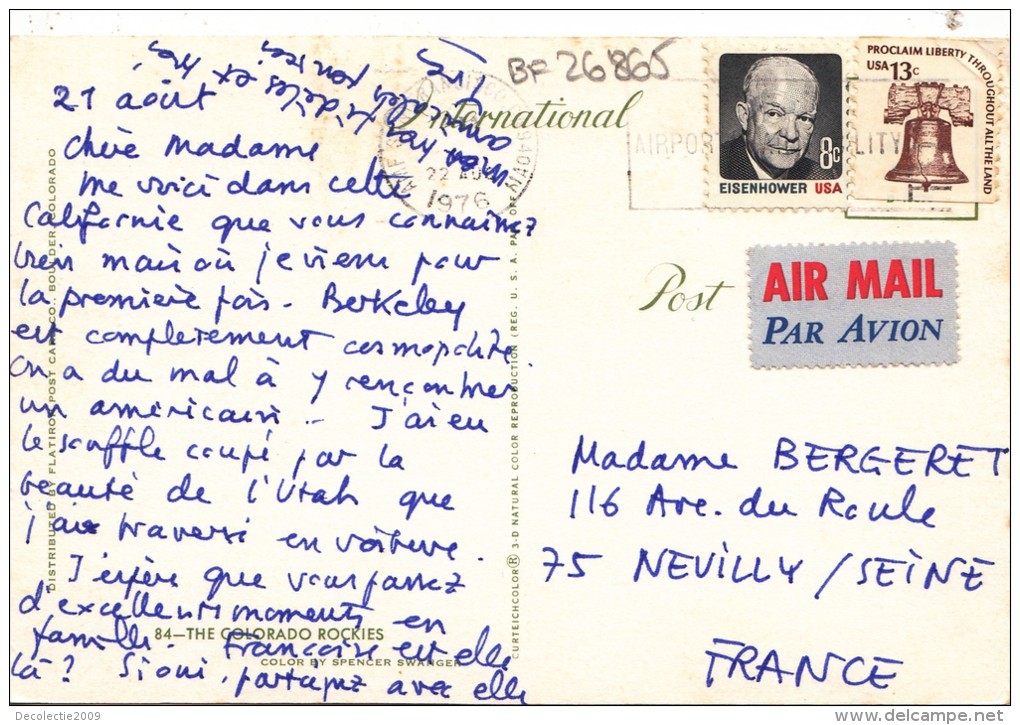 21 août
Chère Madame
me voici dans cette
Californie que vous connaissez
bien mais où je viens pour
la première fois. Berkeley
est complètement cosmopolite.
On a du mal à y rencontrer
un américain. J'ai eu
le souffle coupé par la
beauté de l'Utah que
j'ai traversé en voiture.
J'espère que vous passez
d'excellents moments en
famille. Françoise est elle
là? Si oui, partagez avec elle
mes
amicales pensées
et très
BF 26865
International
22 AUG
1976
AIRPORT
LITY
EISENHOWER USA
8c
PROCLAIM LIBERTY THROUGHOUT ALL THE LAND
USA 13c
Post
AIR MAIL
PAR AVION
Madame BERGERET
116 Ave. du Roule
75 NEUILLY / SEINE
FRANCE
DISTRIBUTED BY FLATIRON POST CARD CO., BOULDER, COLORADO
CURTEICHCOLOR® 3-D NATURAL COLOR REPRODUCTION (REG. U. S. A. PAT. OFF.)
84—THE COLORADO ROCKIES
COLOR BY SPENCER SWANGER
Decolectie2009
www.delcampe.net